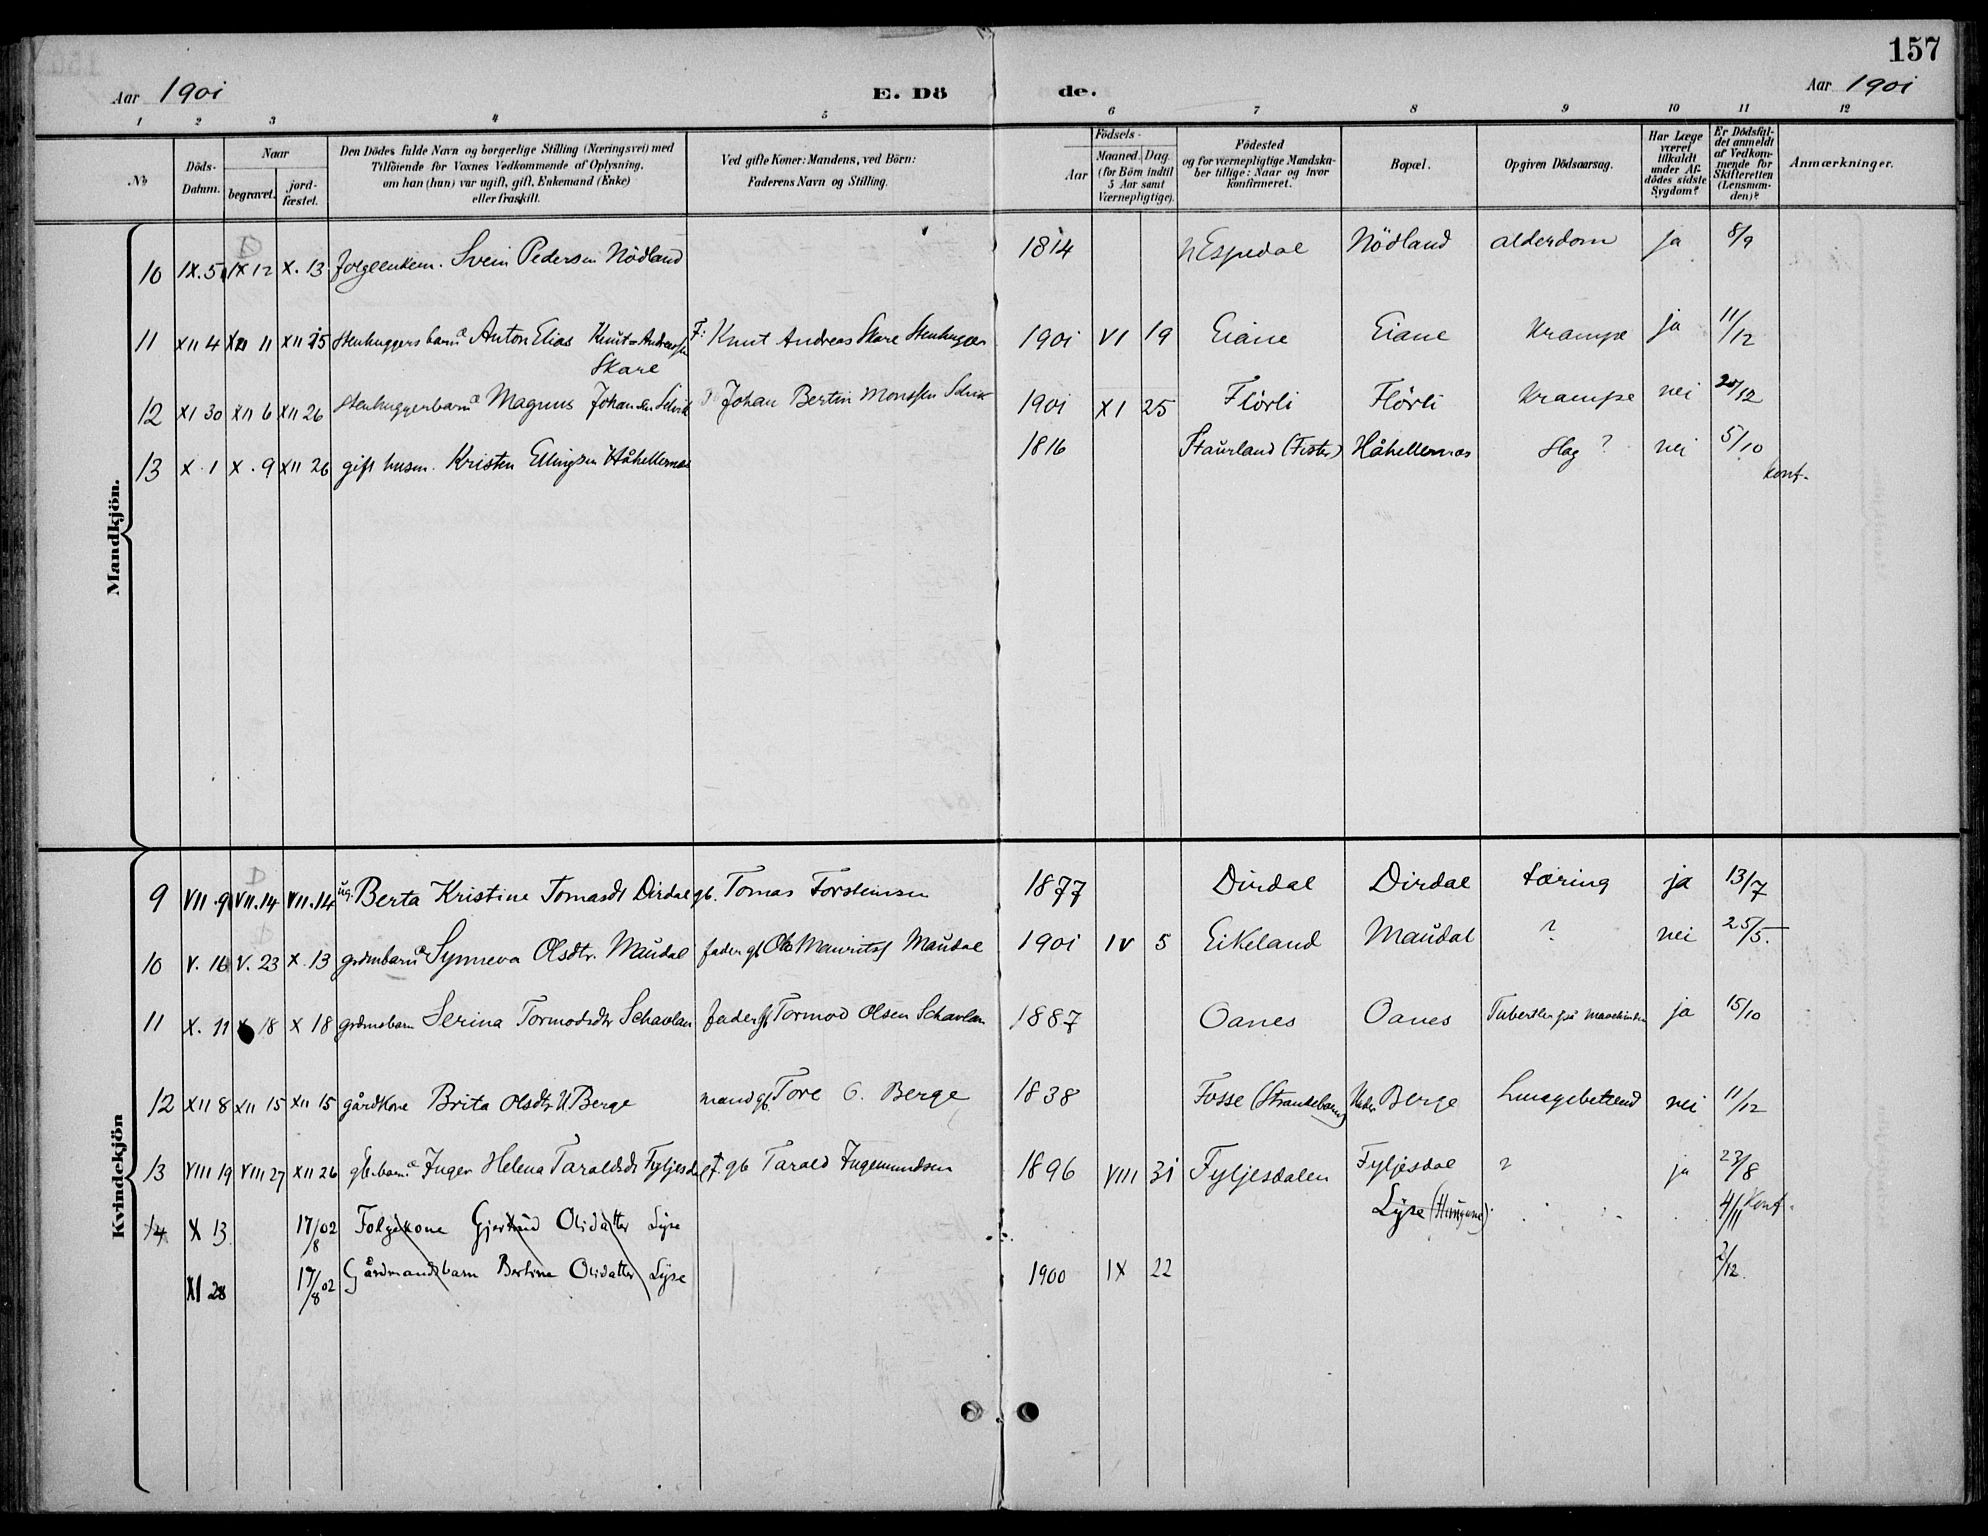 157
Aar 1901 E. Dö de. Aar 1901
1 2 3 4 5 6 7 8 9 10 11 12
No.
Döds-Datum.
Naar
begravet.
jord-fæstet.
Den Dödes fulde Navn og borgerlige Stilling (Næringsvei) med
Tilföiende for Voxnes Vedkommende af Oplysning,
om han (hun) var ugift, gift, Enkemand (Enke)
eller fraskilt.
Ved gifte Koner: Mandens, ved Börn:
Faderens Navn og Stilling.
Födsels-
Aar
Maaned. Dag.
(for Börn indtil
5 Aar samt
Værnepligtige).
Födested
og for værnepligtige Mandska-
ber tillige: Naar og hvor
konfirmeret.
Bopæl.
Opgiven Dödsaarsag.
Har Læge
været
tilkaldt
under Af-
dödes sidste
Sygdom?
Er Dödsfal-
det anmeldt
af Vedkom-
mende for
Skifteretten
(Lensman-
den)?
Anmærkninger.
Mandkjön.
10 IX.5 IX 12 X. 13 Svein Pedersen Nödland 1814 Espedal Nödland alderdom ja 8/9
11 XII 4 XII 11 XII 15 Stenhuggers barn Anton Elias Knut Andreassen F: Knut Andreas Skare Stenhugger 1901 VI 19 Eiane Eiane Krampe ja 11/12
Skare
12 XI 30 XII 6 XII 26 Stenhuggerbarn Magnus Johansen Johan Bertin Monssen 1901 XI 25 Flörli Flörli Krampe nei 20/12
13 X. 1 X. 9 XII 26 gift husm. Kristen Ellingsen Håhellernes 1816 Staurland (Fister) Håhellernes Slag? nei 5/10
Konf.
Kvindekjön
9 VII.9 VII.14 VII.14 ug. Berta Kristine Tomasdt Dirdal gb. Tomas Torsteinsen 1877 Dirdal Dirdal tæring ja 13/7
10 V. 16 V. 23 X. 13 grdmbarn Synneva Olsdtr. Maudal fader gb Ole Mauritsf Maudal 1901 IV 5 Eikeland Maudal ? nei 25/5.
11 X. 11 X 18 X 18 grdmsbarn Serina Tormodsdtr Schavlan fader gb Tormod Olsen Schavlan 1887 Oanes Oanes ja 15/10
12 XII 8 XII 15 XII 15 gårdkone Brita Olsdtr U Berge mand gb. Tore O. Berge 1838 Fosse (Strandebarm) Nedre Berge Lungebetend nei 11/12
13 VIII 19 VIII 27 XII 26 gb. barn Inger Helena Taraldsdt Fyljesdal F. gb Tarald Ingemundsen 1896 VIII 31 Fyljesdalen Fyljesdal ? ja 23/8
14 X 13 17/8 02 Folgekone Gjertrud Olidatter Lyse Lyse 4/11 Konf.
XI 28 17/8 02 Gårdmandsbarn Bertine Olidatter Lyse 1900 IX 22 2/12.